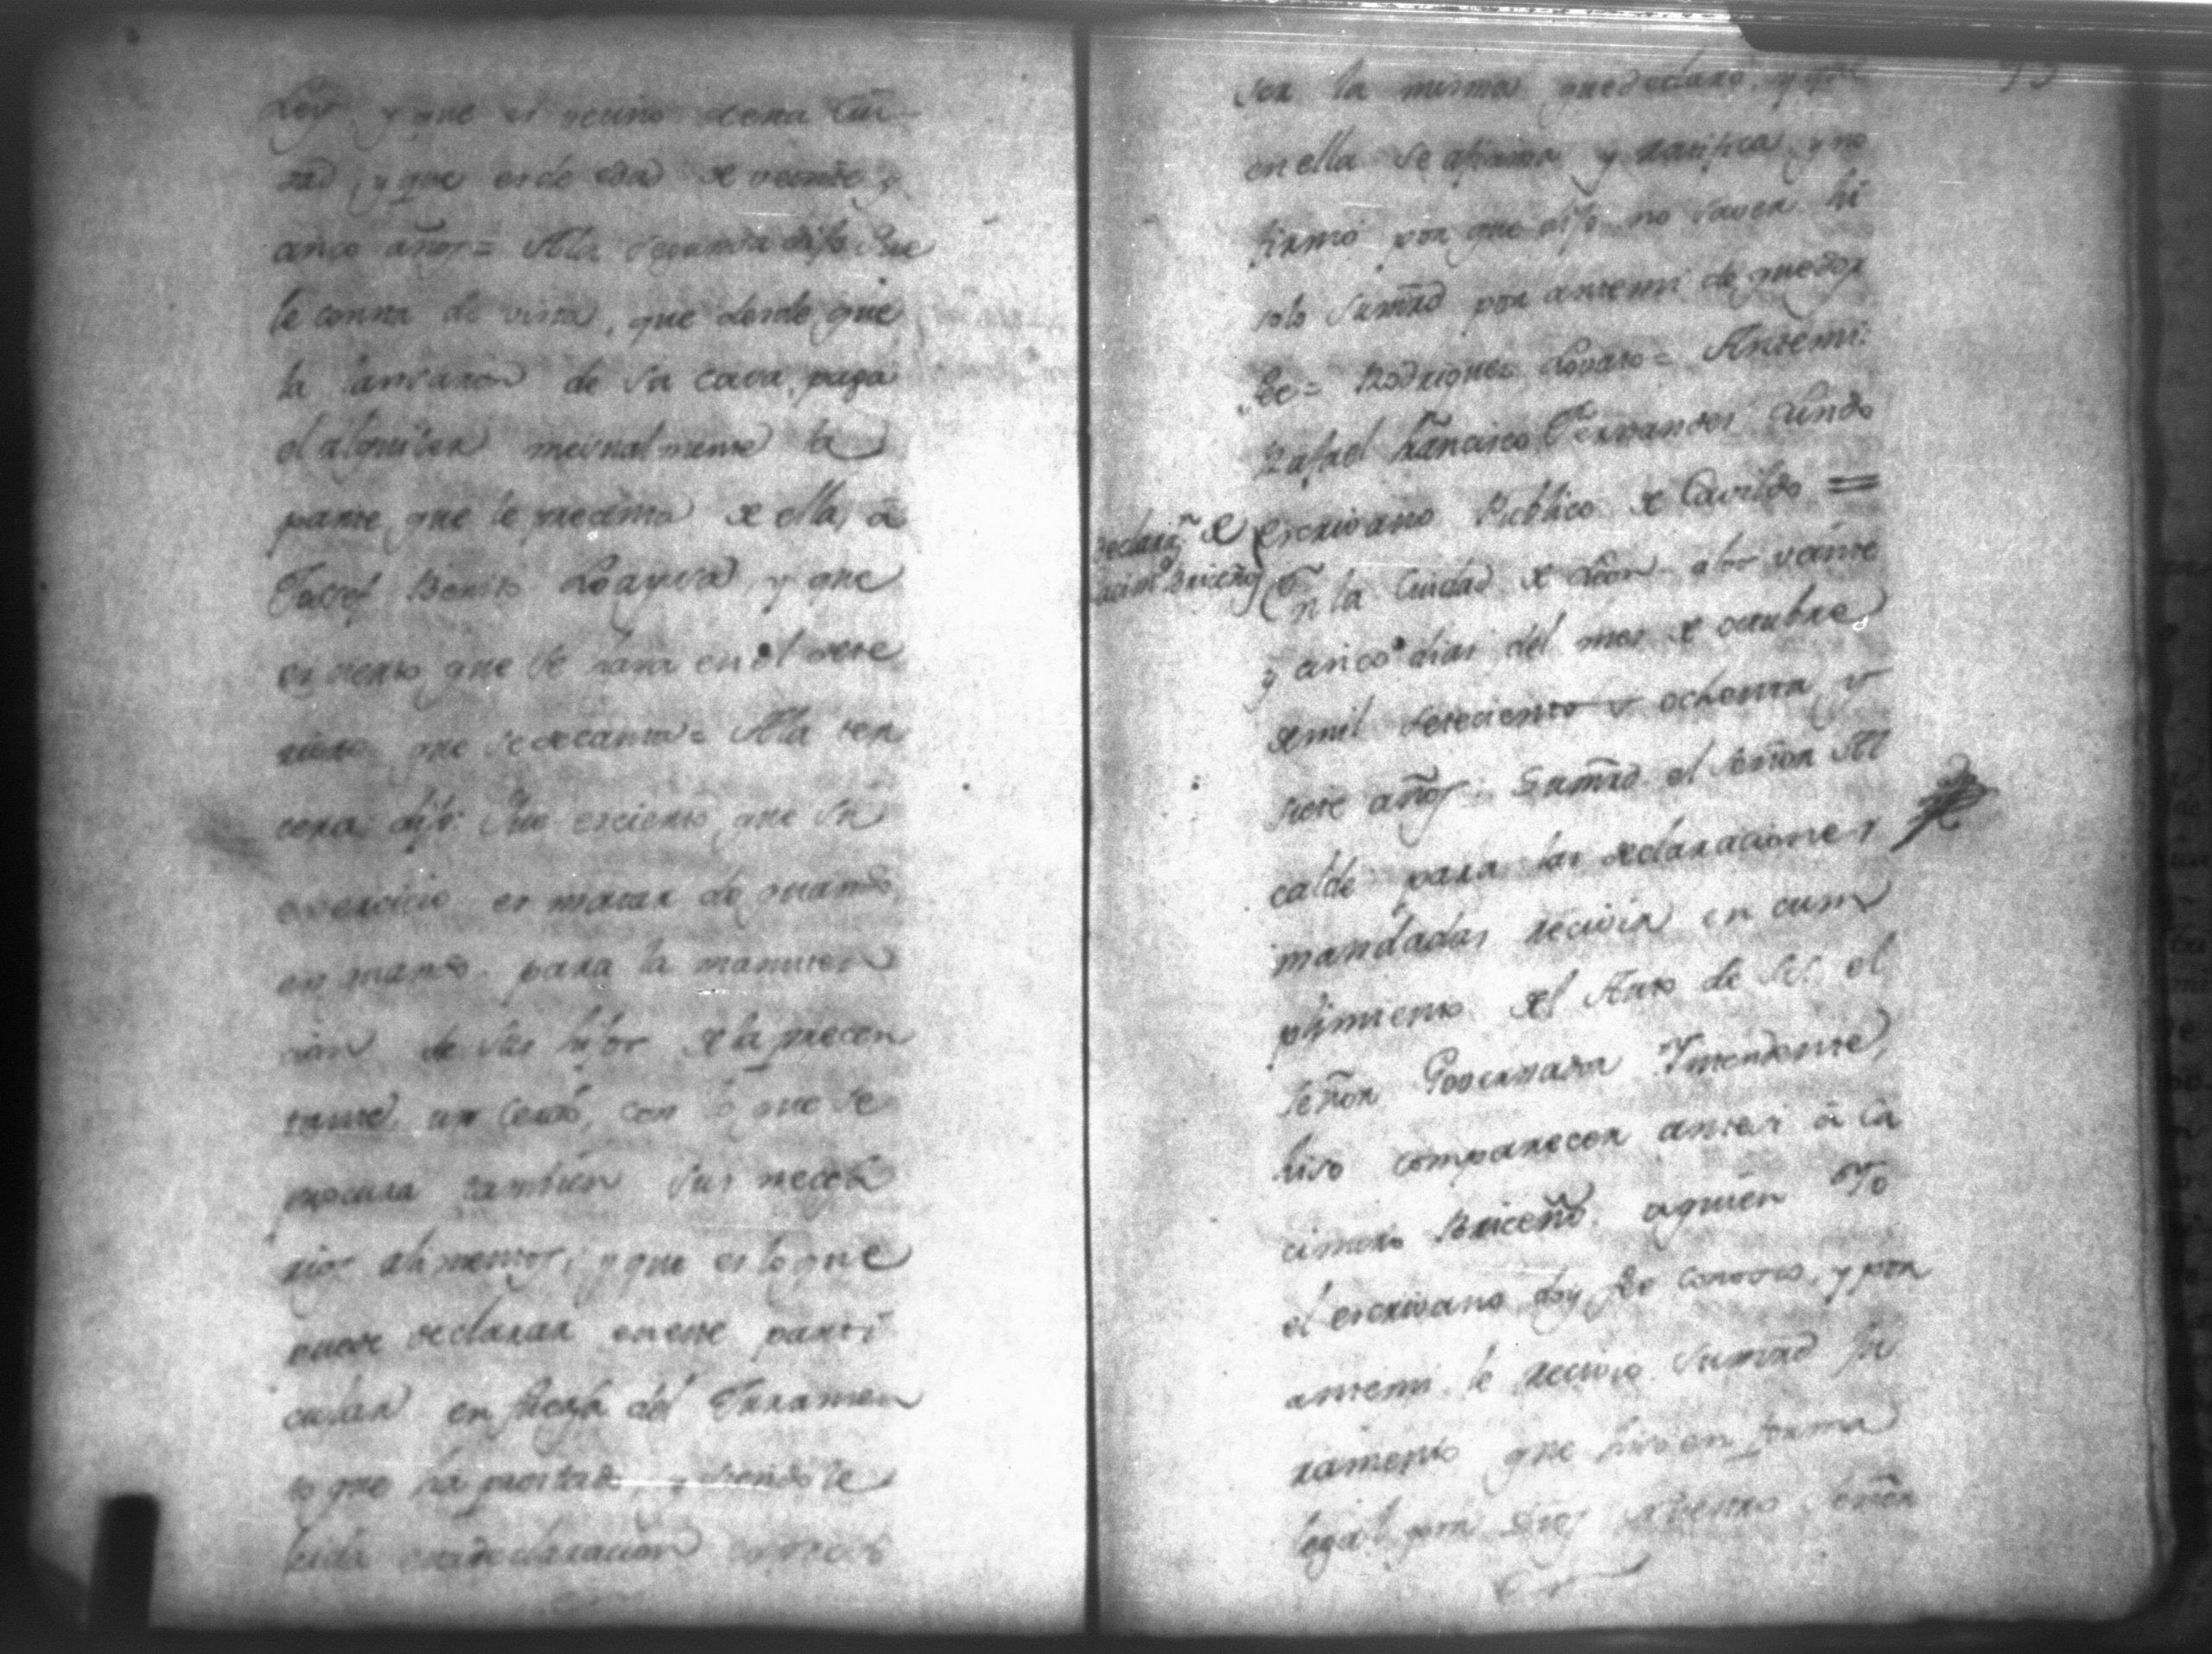 Ley y que es vecino de esta Ciu
dad, y que es de edad de veinte y
cinco años = Ala segunda dijo Que
le consta de vista, que desde que
la lansaron de su casa, paga
el alquiler mensualmente la
parte que le presisa de ella, à
Jossef Benito Loaysa, y que
es cierto que se halla en el
que se decanta = Ala ter
cera dijo: Que es cierto que su
exercicio es matar de quando
en quando para la manuten
cion de sus hijos de la presen
tante, un Cerdo, con lo que se
procura tambien sus necesa
rios alimentos; y que es lo que
puede declarar en este parti
cular en fuerza del Juramen
to que ha prestado y siendole
leida esta declaracion
ser la misma que declaró, y que
en ella se afirma y ratifica, y no
firmó por que dijo no saver hi
solo sumrd por antemi de que doy
Fee = Rodriguez Lovato = Antemi:
Rafael Francisco Fernandes Cindo
Escrivano Publico de Cavildo =
Declarn de
Briceño
En la Ciudad de Leon a los veinte
y cinco dias del mes de octubre
de mil setecientos ochenta y
siete años: Sumrd el señor Al
calde para las declaraciones
mandadas recivir en cum
plimiento del Auto de el
señor Governador Yntendente,
hiso comparecer ante si à Ca
cimiro Briceño, aquien Yo
el escrivano doy fee conosco, y por
antemi le recivio Sumrd Ju
ramento que hiso en forma
legal por Dios Nuestro Señor